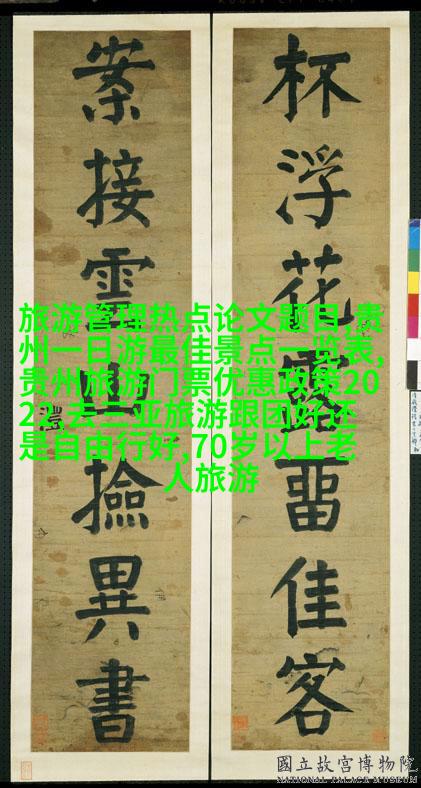 杯浮花露畱佳客
案接雲山撿異書
旅游管理热点论文题目,贵
州一日游最佳景点一览表,
贵州旅游门票优惠政策20
22,去三亚旅游跟团好还
是自由行好,70岁以上老
人旅游
國立故宮博物院
NATIONAL PALACE MUSEUM